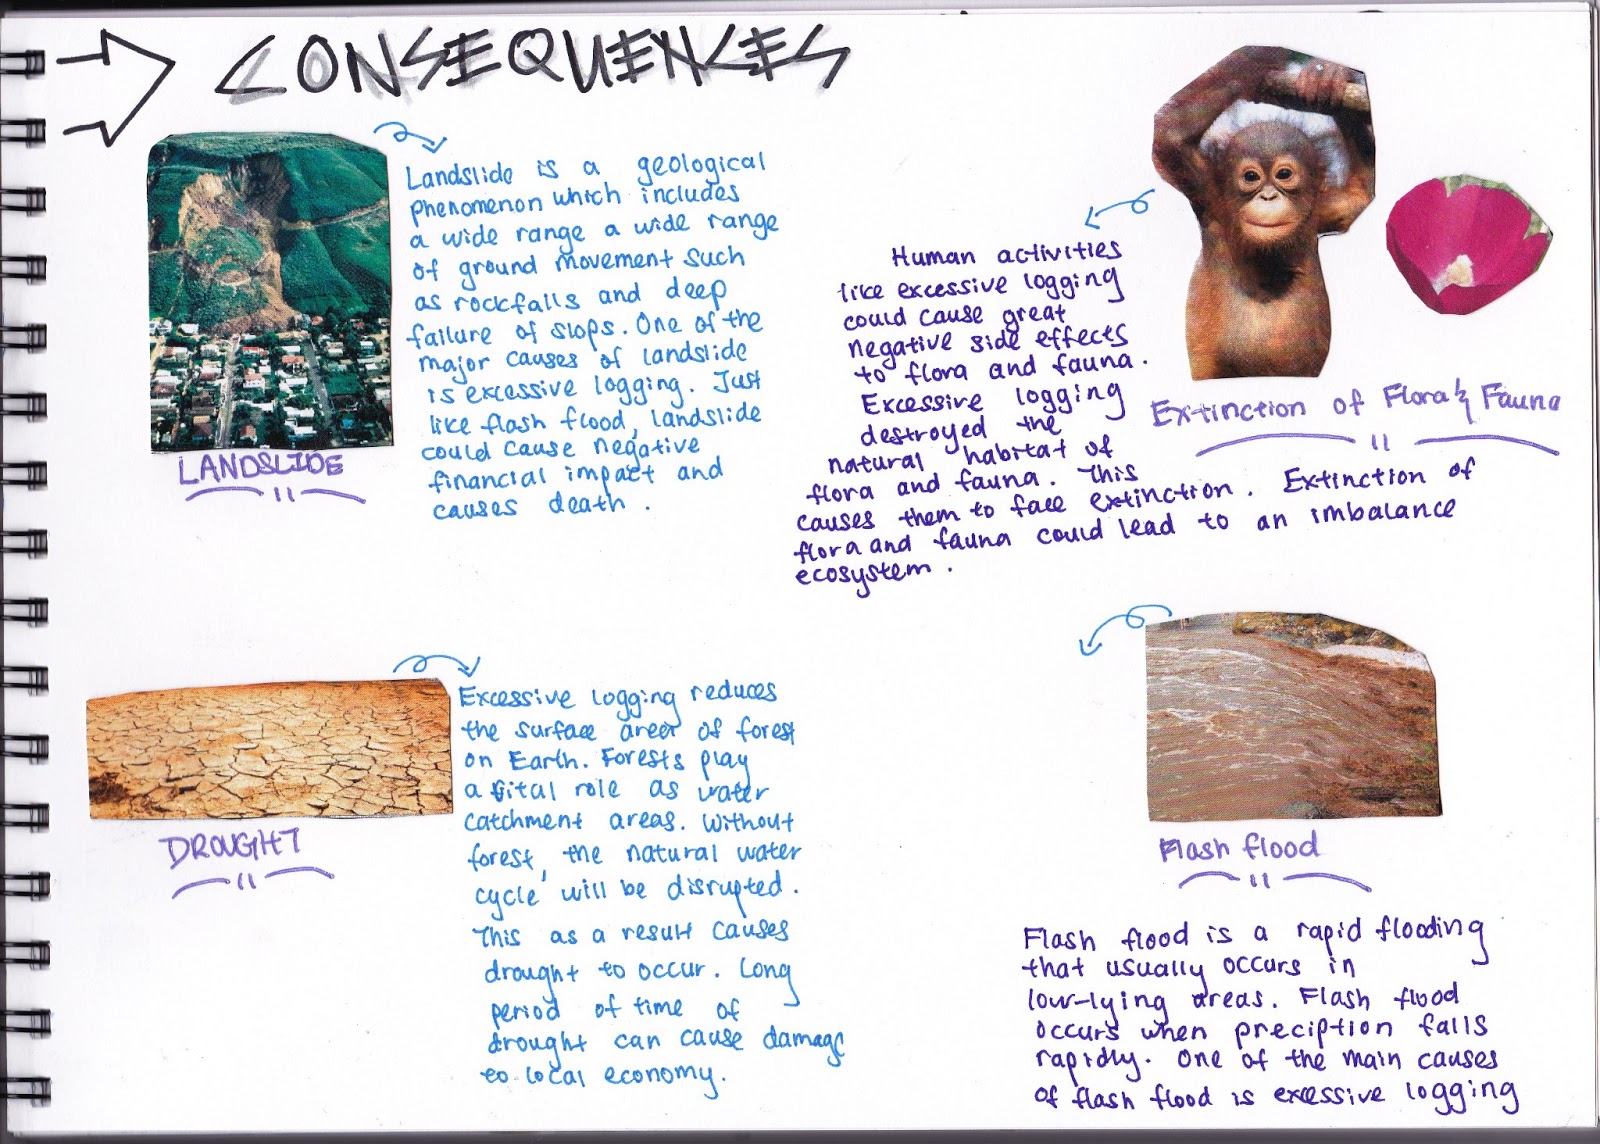 CONSEQUENCES
Landslide is a geological
phenomenon which includes
a wide range a wide range
of ground movement such
as rockfalls and deep
failure of slops. One of the
major causes of landslide
is excessive logging. Just
like flash flood, landslide
could cause negative
financial impact and
causes death.
LANDSLIDE
Human activities
like excessive logging
could cause great
negative side effects
to flora and fauna.
Excessive logging
destroyed the
natural habitat of
flora and fauna. This
causes them to face extinction. Extinction of
flora and fauna could lead to an imbalance
ecosystem.
Extinction of Flora & Fauna
Excessive logging reduces
the surface area of forest
on Earth. Forests play
a vital role as water
catchment areas. Without
forest, the natural water
cycle will be disrupted.
This as a result causes
drought to occur. Long
period of time of
drought can cause damage
to local economy.
DROUGHT
Flash flood
Flash flood is a rapid flooding
that usually occurs in
low-lying areas. Flash flood
occurs when preciption falls
rapidly. One of the main causes
of flash flood is excessive logging